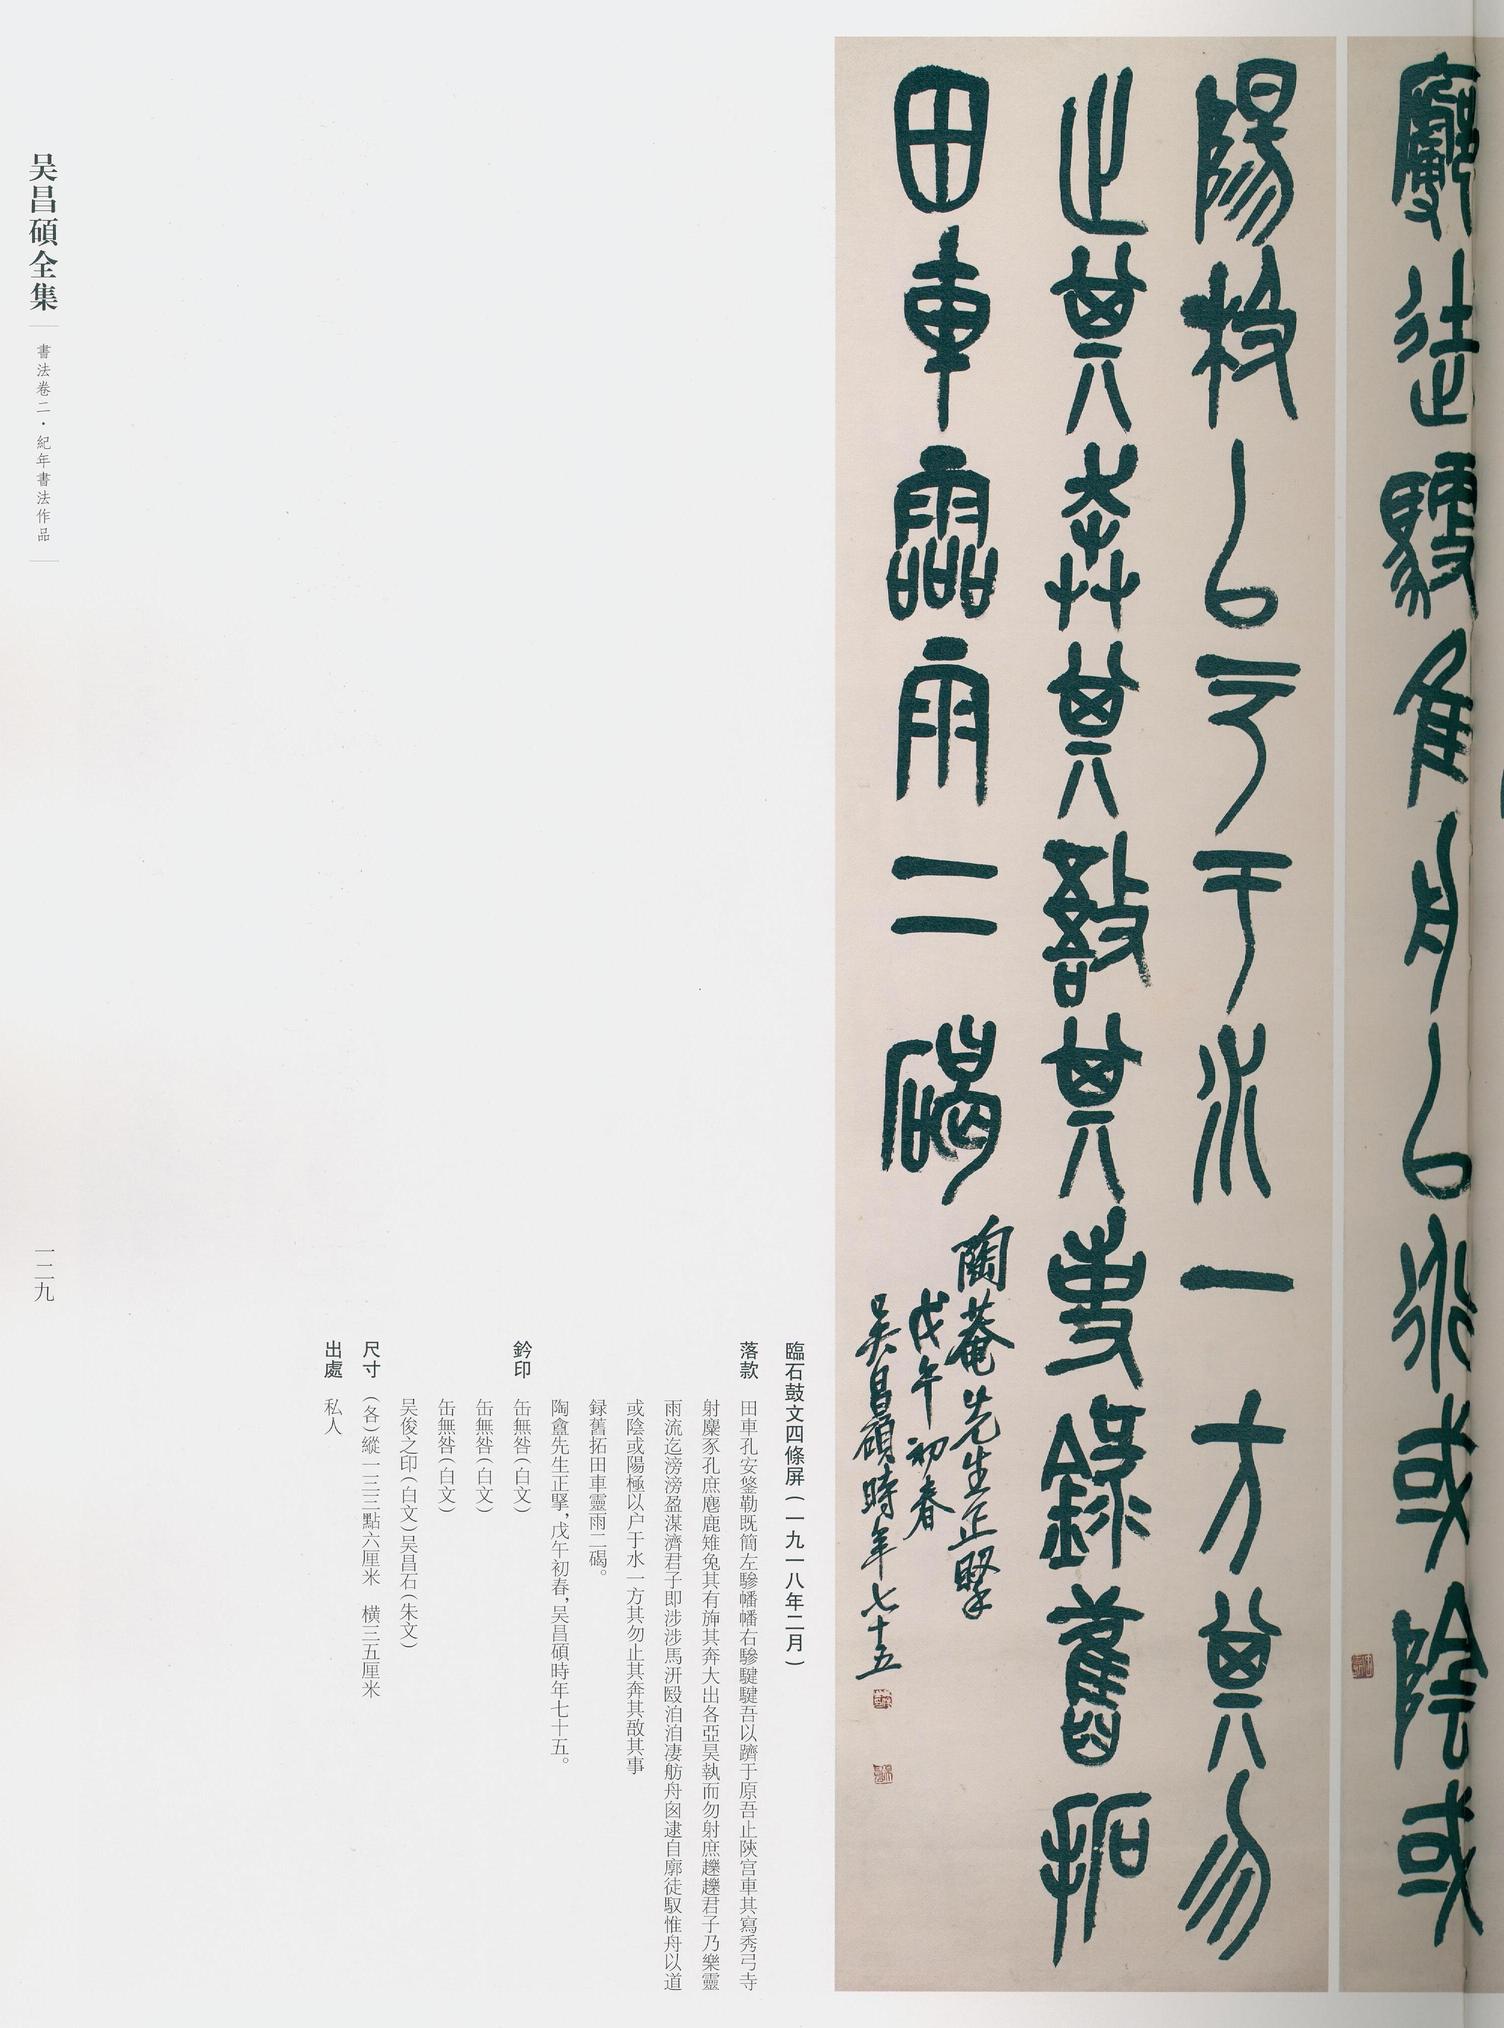 廓徒馭隹舟以衍或陰或
陽极以户于水一方其勿
止其奔其敔其事錄舊拓
田車靈雨二碣
陶菴先生正擘
戊午初春
吴昌碩時年七十五
臨石鼓文四條屏（一九一八年二月）
落款 田車孔安鋚勒既簡左驂幡幡右驂騝騝吾以隮于原吾止陜宫車其寫秀弓寺
射麋豕孔庶麀鹿雉兔其有旆其奔大出各亞昊執而勿射庶趮趮君子乃樂靈
雨流迄滂滂盈渫濟君子即涉涉馬汧殹洎洎凄舫舟囪逮自廓徒馭惟舟以道
或陰或陽極以户于水一方其勿止其奔其敔其事
録舊拓田車靈雨二碣。
陶盦先生正擘，戊午初春，吴昌碩時年七十五。
鈐印 缶無咎（白文）
缶無咎（白文）
缶無咎（白文）
吴俊之印（白文）吴昌石（朱文）
尺寸 （各）縱一三三點六厘米 横三五厘米
出處 私人
吴昌碩全集
書法卷二·紀年書法作品
一二九